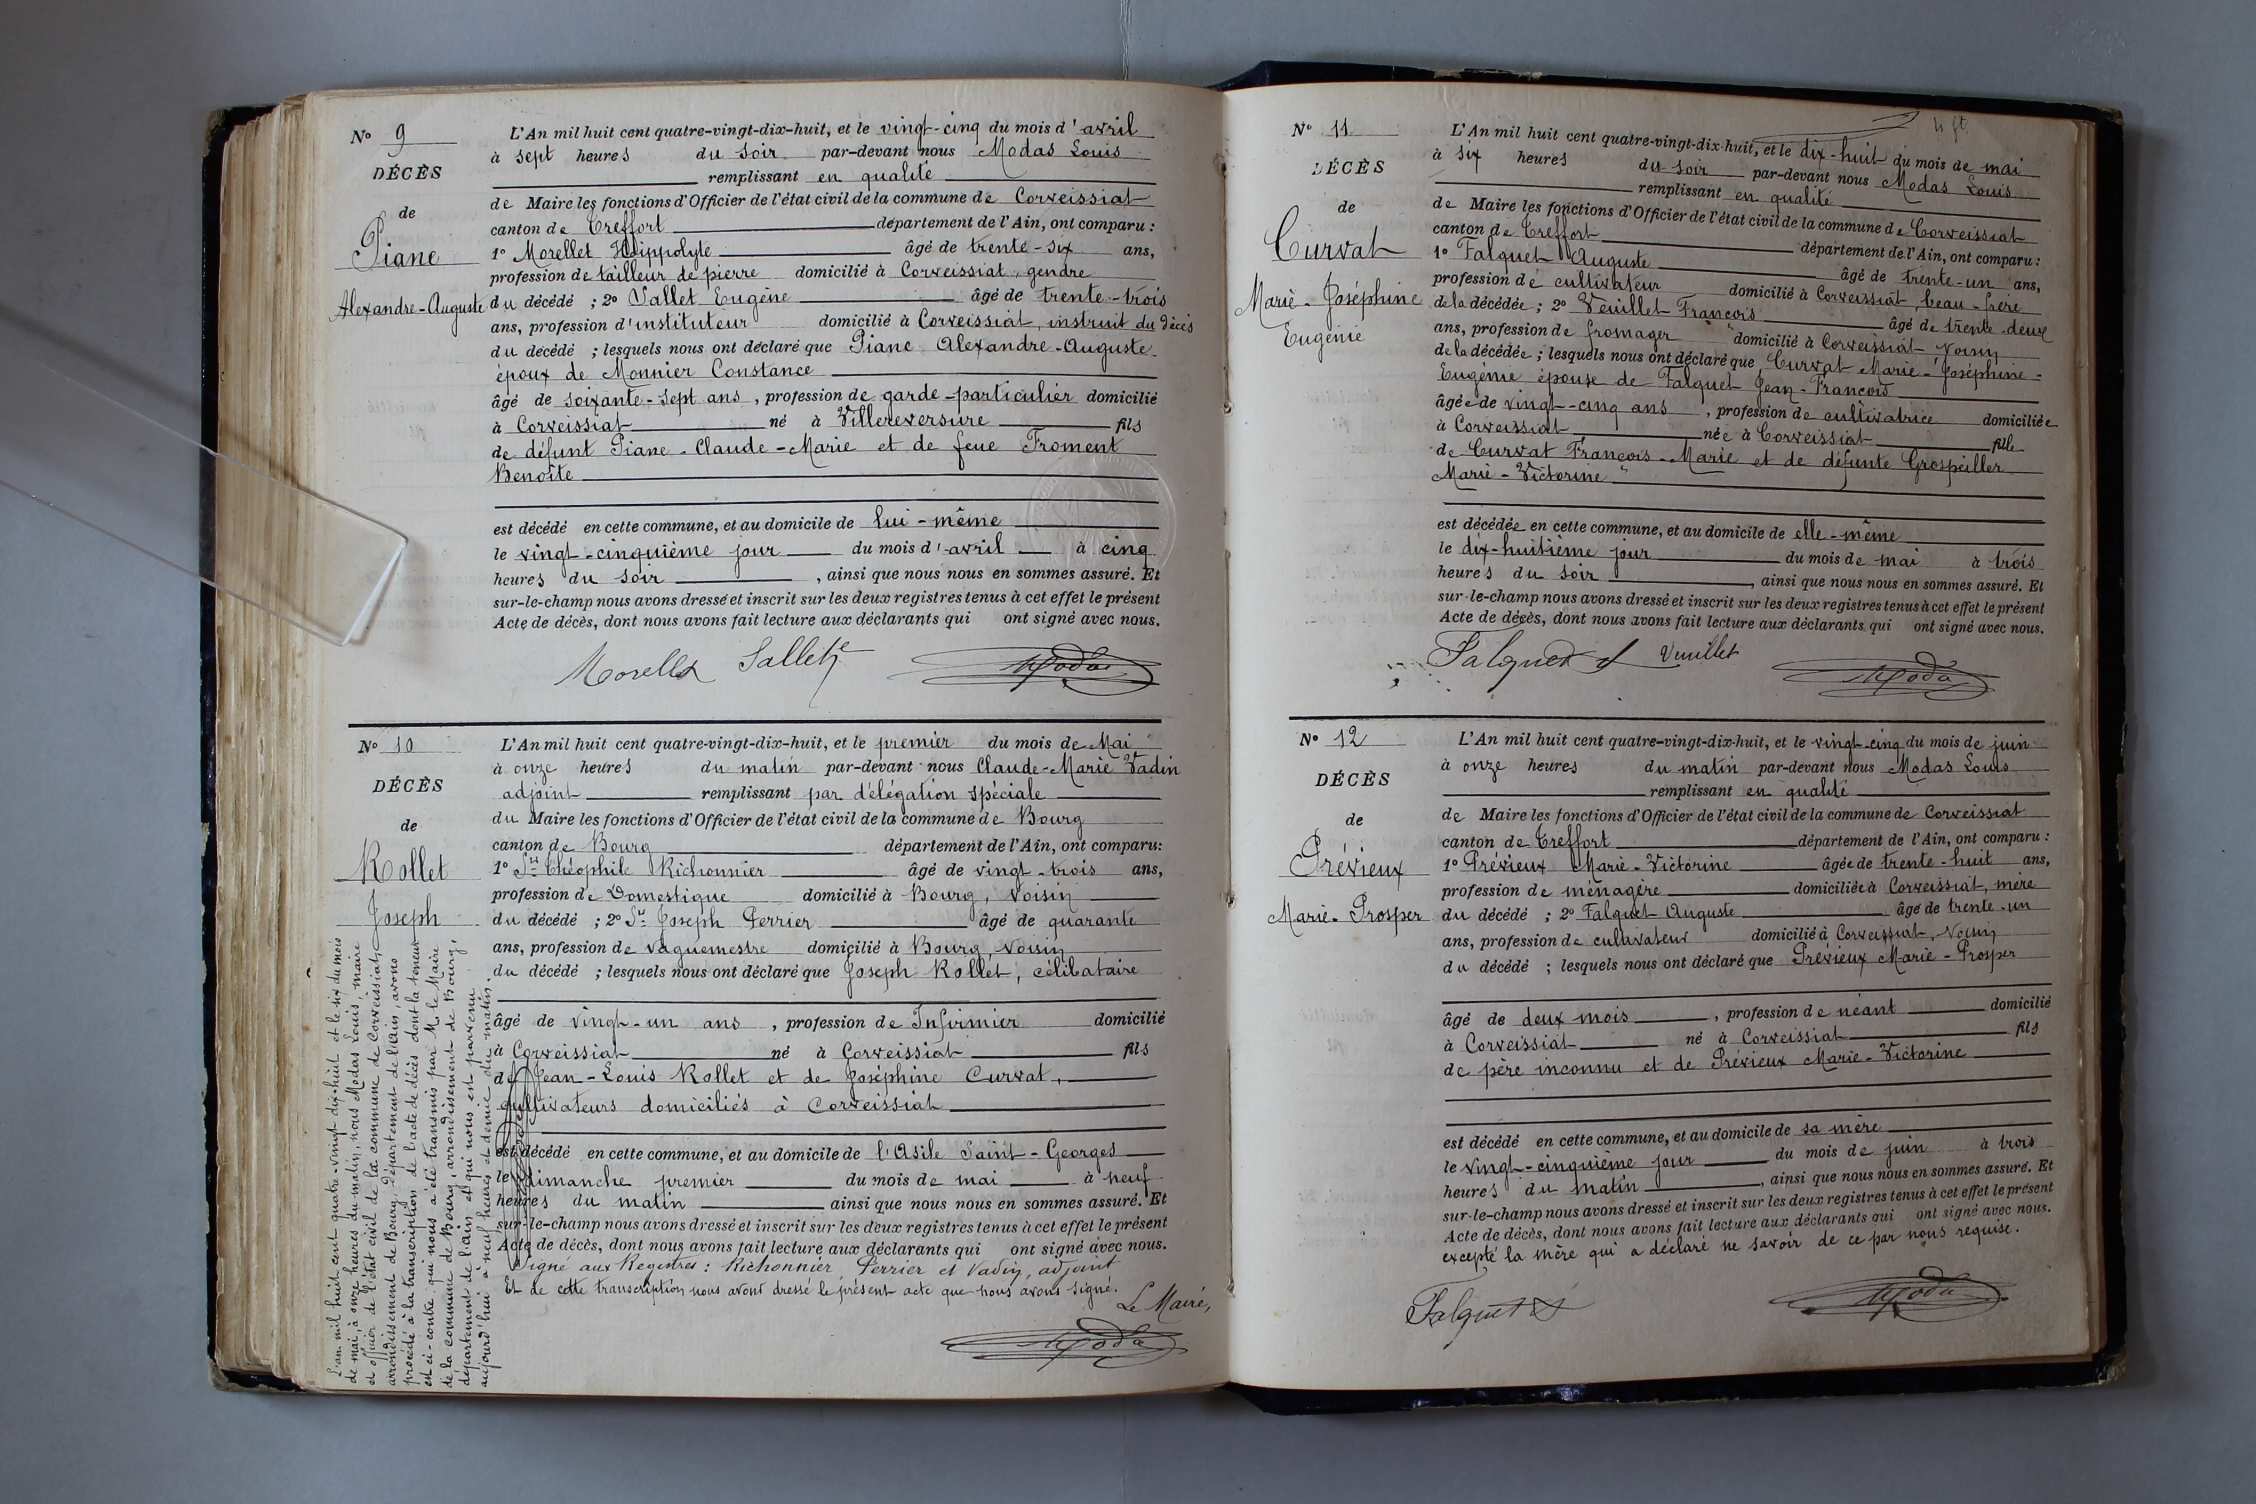 N° 9
DÉCÈS
de
Piane
Alexandre-Auguste
L'An mil huit cent quatre-vingt-dix-huit, et le vingt-cinq du mois d'avril
à sept heures du soir par-devant nous Modas Louis
remplissant en qualité
de Maire les fonctions d'Officier de l'état civil de la commune de Corveissiat
canton de Treffort département de l'Ain, ont comparu :
1° Morellet Hippolyte âgé de trente-six ans,
profession de tailleur de pierre domicilié à Corveissiat, gendre
du décédé ; 2° Sallet Eugène âgé de trente-trois
ans, profession d'instituteur domicilié à Corveissiat, instruit du décès
du décédé ; lesquels nous ont déclaré que Piane Alexandre-Auguste
époux de Monnier Constance
âgé de soixante-sept ans, profession de garde-particulier domicilié
à Corveissiat né à Villereversure fils
de défunt Piane Claude-Marie et de feue Froment
Benoîte
est décédé en cette commune, et au domicile de lui-même
le vingt-cinquième jour du mois d'avril à cinq
heures du soir, ainsi que nous nous en sommes assuré. Et
sur-le-champ nous avons dressé et inscrit sur les deux registres tenus à cet effet le présent
Acte de décès, dont nous avons fait lecture aux déclarants qui ont signé avec nous.
Morellet Sallet Modas
N° 10
DÉCÈS
de
Rollet
Joseph
L'an mil huit cent quatre-vingt-dix-huit et le six du mois
de mai, à onze heures du matin, nous Modas Louis, maire
et officier de l'état civil de la commune de Corveissiat,
arrondissement de Bourg, département de l'Ain, avons
procédé à la transcription de l'acte de décès dont la teneur
est ci-contre qui nous a été transmis par M. le Maire
de la commune de Bourg, arrondissement de Bourg,
département de l'ain et qui nous est parvenu
aujourd'hui à neuf heures et demie du matin.
L'An mil huit cent quatre-vingt-dix-huit, et le premier du mois de Mai
à onze heures du matin par-devant nous Claude-Marie Vadin
adjoint remplissant par délégation spéciale
du Maire les fonctions d'Officier de l'état civil de la commune de Bourg
canton de Bourg département de l'Ain, ont comparu:
1° Sr Théophile Richonnier âgé de vingt-trois ans,
profession de Domestique domicilié à Bourg, voisin
du décédé ; 2° Sr Joseph Perrier âgé de quarante
ans, profession de vaguemestre domicilié à Bourg, voisin
du décédé ; lesquels nous ont déclaré que Joseph Rollet, célibataire
âgé de vingt-un ans, profession de Infirmier domicilié
à Corveissiat né à Corveissiat fils
de Jean-Louis Rollet et de Joséphine Curvat,
cultivateurs domiciliés à Corveissiat
est décédé en cette commune, et au domicile de l'Asile Saint-Georges
le dimanche premier du mois de mai à neuf
heures du matin ainsi que nous nous en sommes assuré. Et
sur-le-champ nous avons dressé et inscrit sur les deux registres tenus à cet effet le présent
Acte de décès, dont nous avons fait lecture aux déclarants qui ont signé avec nous.
Signé aux Registres : Richonnier Perrier et Vadin, adjoint
Et de cette transcription nous avons dressé le présent acte que nous avons signé.
Le Maire,
Modas
N° 11
DÉCÈS
de
Curvat
Marie-Joséphine
Eugénie
L'An mil huit cent quatre-vingt-dix-huit, et le dix-huit du mois de mai
à six heures du soir par-devant nous Modas Louis
remplissant en qualité
de Maire les fonctions d'Officier de l'état civil de la commune de Corveissiat
canton de Treffort département de l'Ain, ont comparu :
1° Falquet Auguste âgé de trente-un ans,
profession de cultivateur domicilié à Corveissiat, beau-frère
de la décédée ; 2° Veuillet François âgé de trente-deux
ans, profession de fromager domicilié à Corveissiat voisin
de la décédée ; lesquels nous ont déclaré que Curvat Marie-Joséphine-
Eugénie épouse de Falquet Jean-François
âgée de vingt-cinq ans, profession de cultivatrice domiciliée
à Corveissiat née à Corveissiat fille
de Curvat François-Marie et de défunte Grospeiller
Marie-Victorine
est décédée en cette commune, et au domicile de elle-même
le dix-huitième jour du mois de mai à trois
heures du soir, ainsi que nous nous en sommes assuré. Et
sur-le-champ nous avons dressé et inscrit sur les deux registres tenus à cet effet le présent
Acte de décès, dont nous avons fait lecture aux déclarants qui ont signé avec nous.
Falquet Veuillet Modas
N° 12
DÉCÈS
de
Prévieux
Marie-Prosper
L'An mil huit cent quatre-vingt-dix-huit, et le vingt-cinq du mois de juin
à onze heures du matin par-devant nous Modas Louis
remplissant en qualité
de Maire les fonctions d'Officier de l'état civil de la commune de Corveissiat
canton de Treffort département de l'Ain, ont comparu :
1° Prévieux Marie-Victorine âgée de trente-huit ans,
profession de ménagère domiciliée à Corveissiat, mère
du décédé ; 2° Falquet Auguste âgé de trente-un
ans, profession de cultivateur domicilié à Corveissiat, voisin
du décédé ; lesquels nous ont déclaré que Prévieux Marie-Prosper
âgé de deux mois, profession de néant domicilié
à Corveissiat né à Corveissiat fils
de père inconnu et de Prévieux Marie-Victorine
est décédé en cette commune, et au domicile de sa mère
le vingt-cinquième jour du mois de juin à trois
heures du matin, ainsi que nous nous en sommes assuré. Et
sur-le-champ nous avons dressé et inscrit sur les deux registres tenus à cet effet le présent
Acte de décès, dont nous avons fait lecture aux déclarants qui ont signé avec nous.
excepté la mère qui a déclaré ne savoir de ce par nous requise.
Falquet Modas